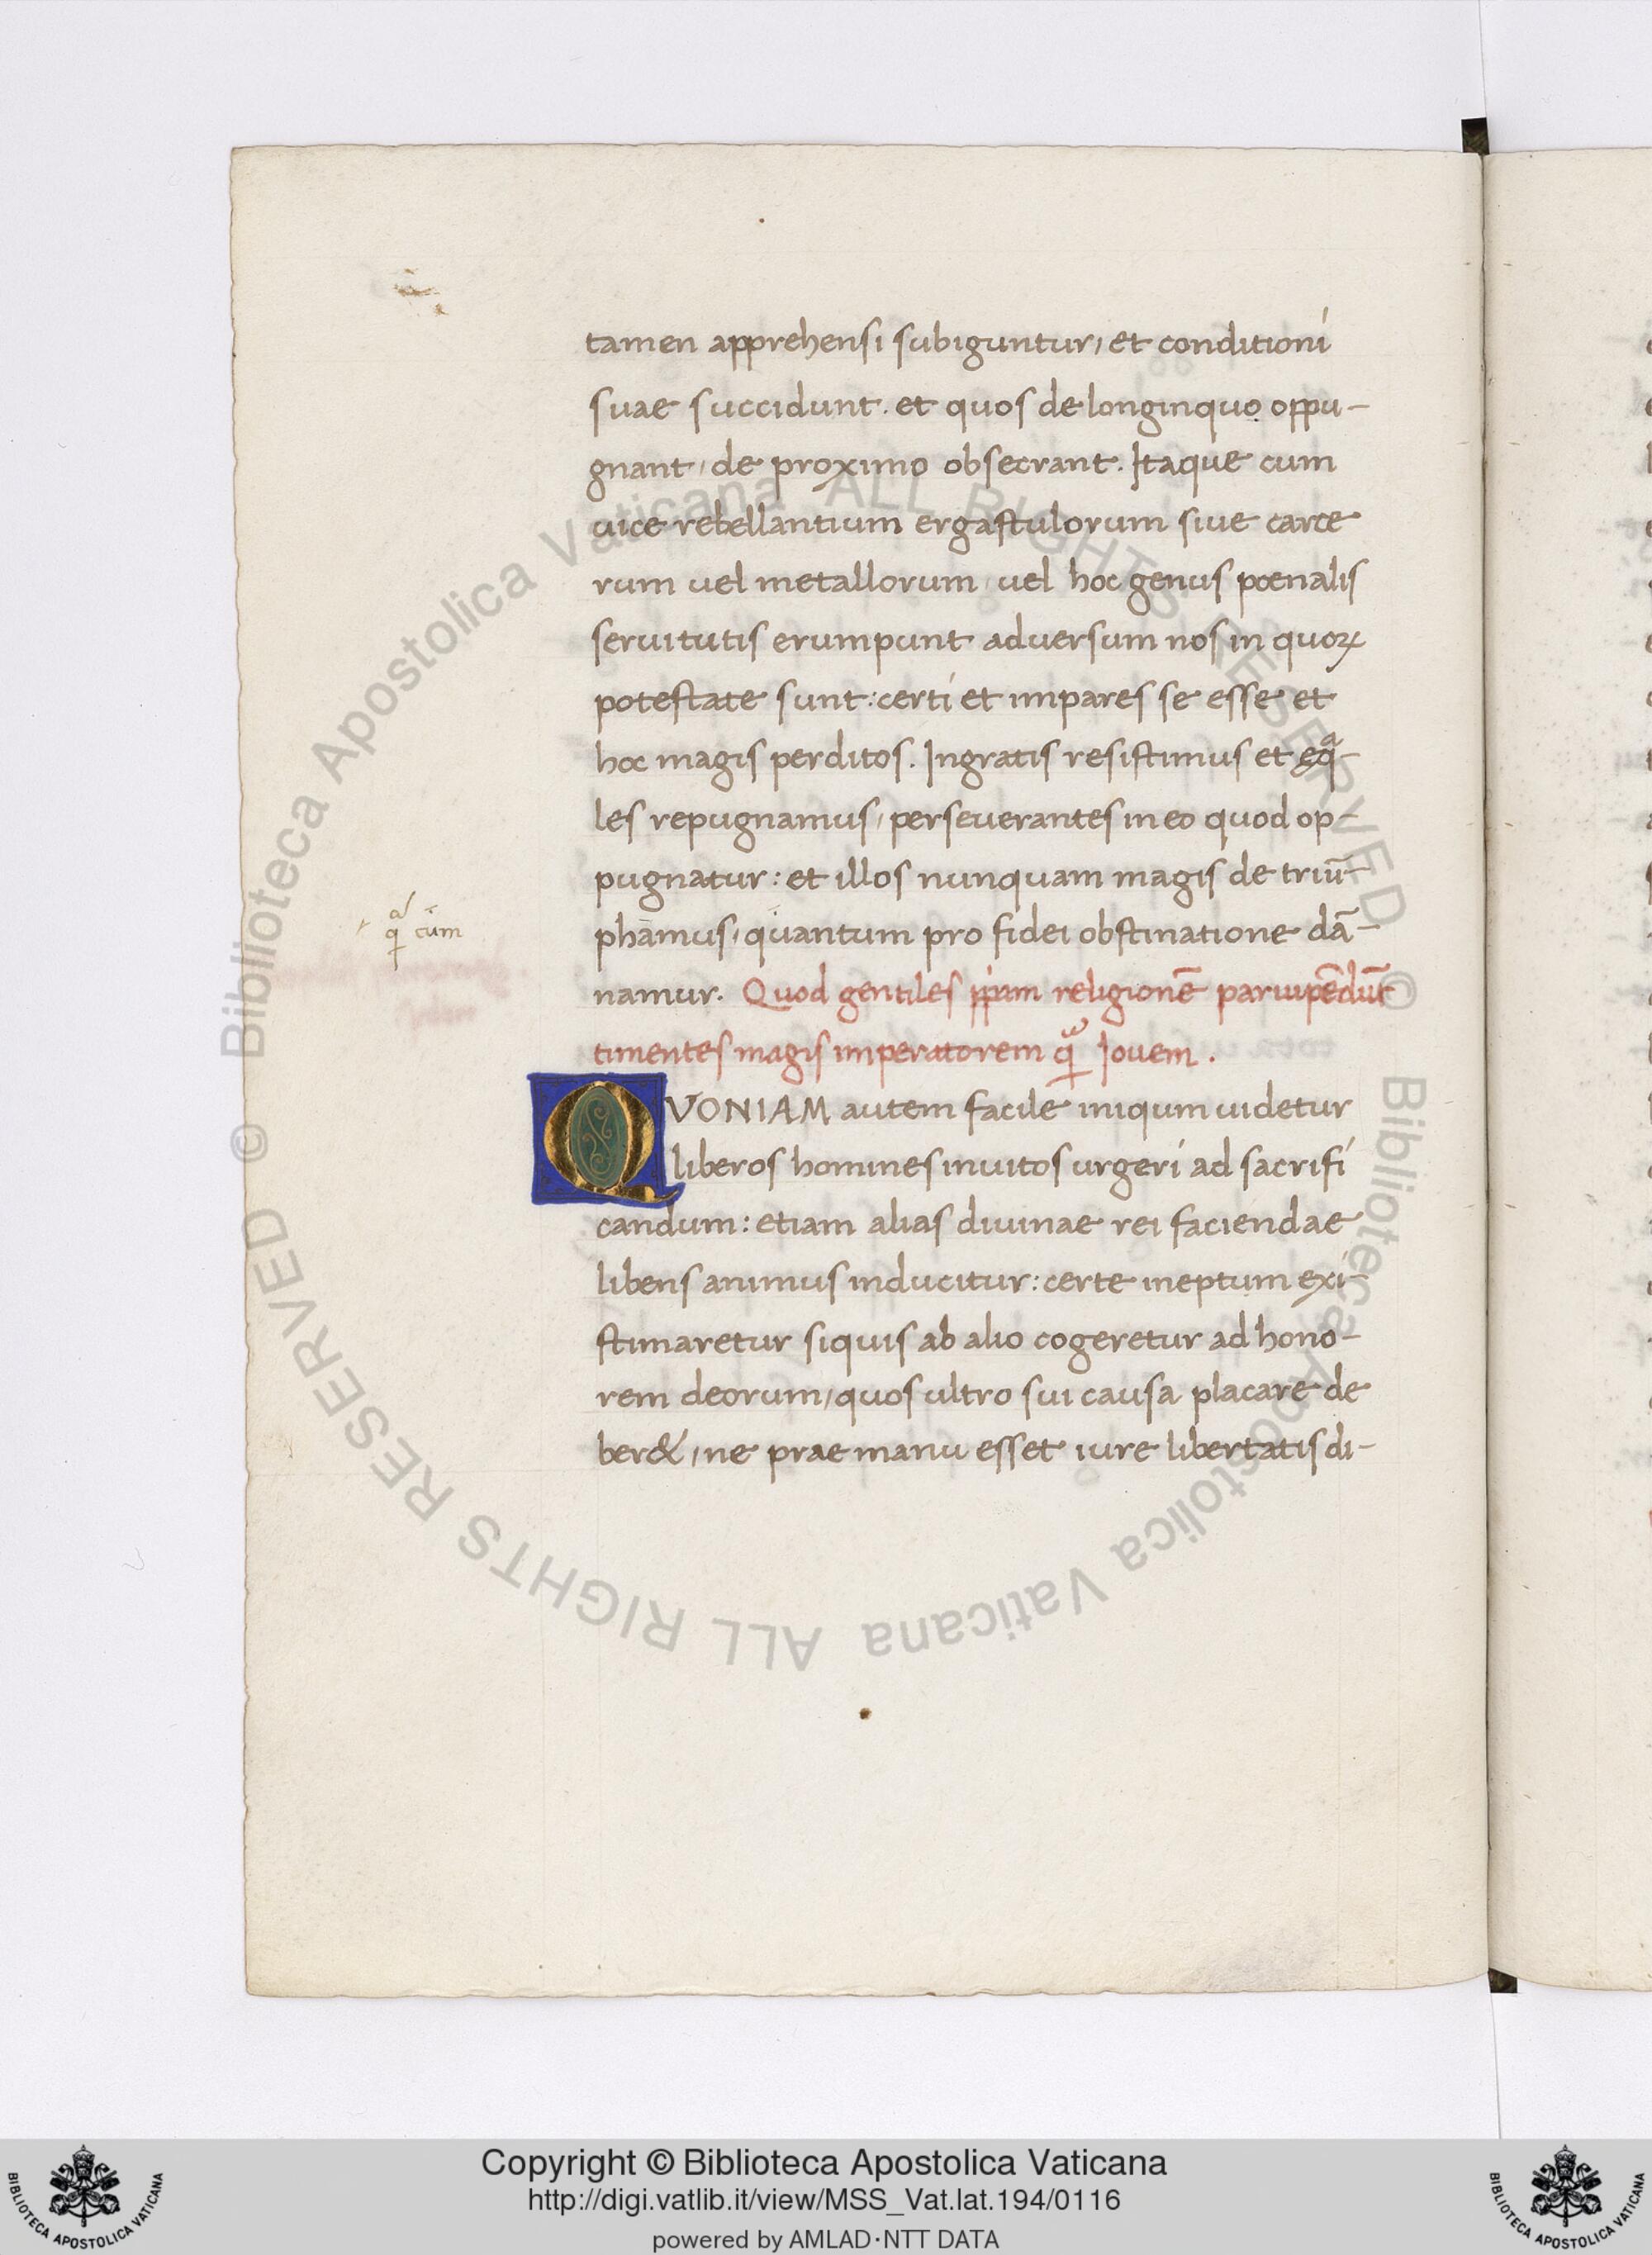 tamen apprehensi subiguntur, et conditioni
suae succidunt. et quos de longinquo oppu-
gnant, de proximo obsecrant. Itaque cum
uice rebellantium ergastulorum siue carce
rum uel metallorum, uel hoc genus poenalis
seruitutis erumpunt aduersum nos in quoꝝ
potestate sunt: certi et impares se esse et
hoc magis perditos. Ingratis resistimus et eqᵃ-
les repugnamus, perseuerantes in eo quod op-
pugnatur: et illos nunquam magis de triū-
phamus, quantum pro fidei obstinatione dā-
qᵃ̷ cum
namur. Quod gentiles ṗpam religionē paruipēdūt
timentes magis imperatorem qᵃ̃ Iouem.
QVONIAM autem facile iniqum uidetur
liberos homines inuitos urgeri ad sacrifi
candum: etiam alias diuinae rei faciendae
libens animus inducitur: certe ineptum exi-
stimaretur siquis ab alio cogeretur ad hono-
rem deorum, quos ultro sui causa placare de
ber&, ne prae manu esset iure libertatis di-
© Biblioteca Apostolica Vaticana ALL RIGHTS RESERVED
© Biblioteca Apostolica Vaticana ALL RIGHTS RESERVED
Copyright © Biblioteca Apostolica Vaticana
http://digi.vatlib.it/view/MSS_Vat.lat.194/0116
powered by AMLAD·NTT DATA
BIBLIOTECA APOSTOLICA VATICANA
BIBLIOTECA APOSTOLICA VATICANA